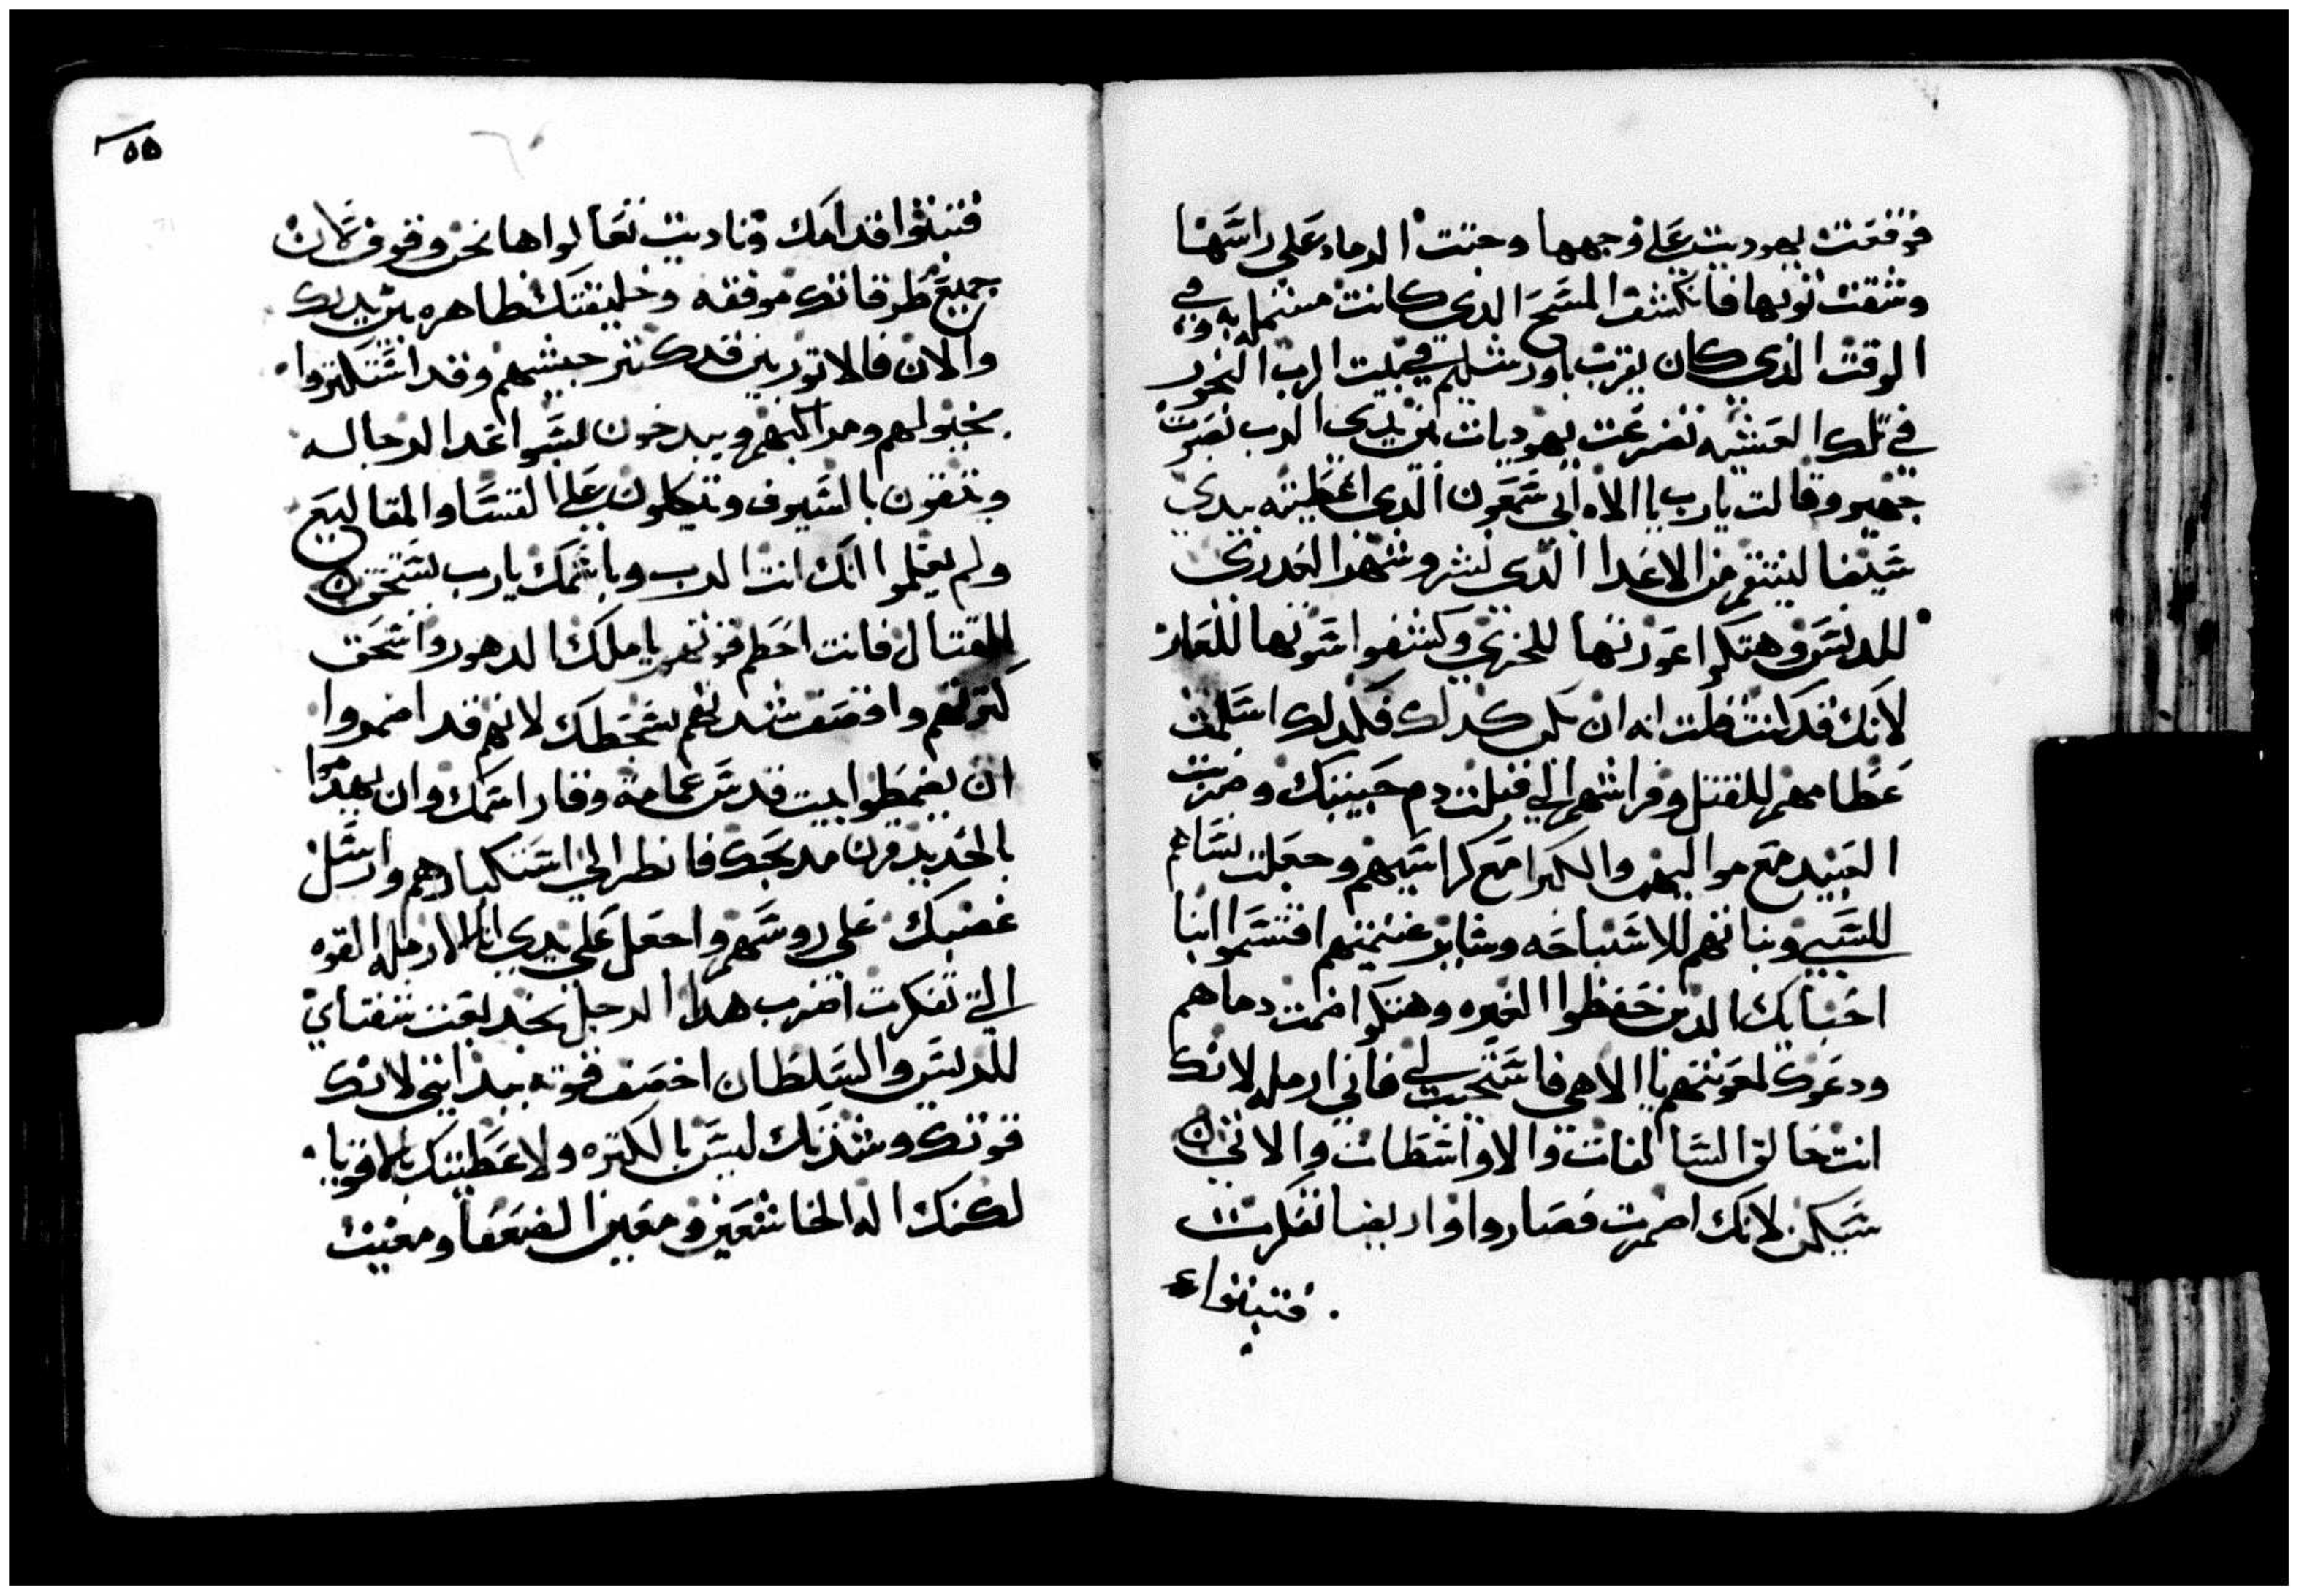 فوقعت يهوديت على وجهها وحتت الرماد على راسها
وشقت ثوبها فانكشف المسح الدي كانت مشتمله به وفي
الوقت الدي كان يقرب باورشليم في بيت الرب البخور
في تلك العشيه تضرعت يهوديات بين يدي الرب بصوت
جهير وقالت يارب ياالاه ابي شمعون الدي اعطيته بيدي
سيفا لينتقم من الاعدا الدي نشروشهم العدري
للدنس وهتكوا عورتها للخزي وكشفوا سوتها للعار
لانك قد كنت قلت انه ان يكن كدلك فلدلك اسلمت
عظامهم للقتل وفراشهم الي قبلت دم حبيبك وضربت
العبيد مع مواليهم والكبرا مع كراسيهم وجعلت نساهم
للسبي وبناتهم للاستباحه وسايز غنيمتهم اقتسموا ابنا
احبايك الدين حفظوا الغيره وهتكوا ضمت دماهم
ودعوك لمعونتهم ياالاهي فاستجيب لي فاني ارمله لانك
انت خالق السالفات والاواسطات والاتي
سيكن لانك اضمرت فصاروا واريضا تفكرت
فتبنوا
٥٥
فتبنوا قدامك وناديت تعالوا هانحن وقوف لان
جميع طرقاتك موفقه وخليقتك ظاهره بين يديك
والان فالاتوريين قدكتر جيشهم وقد استكتروا
بخيولهم ومراكبهم ويبدخون بسواعد الرجاله
ويتقون بالسيوف ويتكلون على القسا والمقاليع
ولم يعلموا انك انت الرب وباسمك يارب يستحق
للقتال فانت احطم قوتهم ياملك الدهور واسحق
كترتهم واقصف شدتهم بسخطك لانهم قد اضمروا
ان يغمطوا بيت قدس عمامة وقار اسمك وان يهدموا
بالحديد قرن مدبحك فانظر الي استكبارهم وارسل
غضبك على روسهم واجعل على يدي انا الارمله القوه
التي تفكرت اضرب هدا الرجل بخديعت شفتاي
للرئيس والسلطان اخصف قوته بيد ابني لانك
قوتك وشدتك ليس بالكتره ولا عظمتك بالاقويا
لكنك اله الخاشعين ومعين الضعفا ومغيث